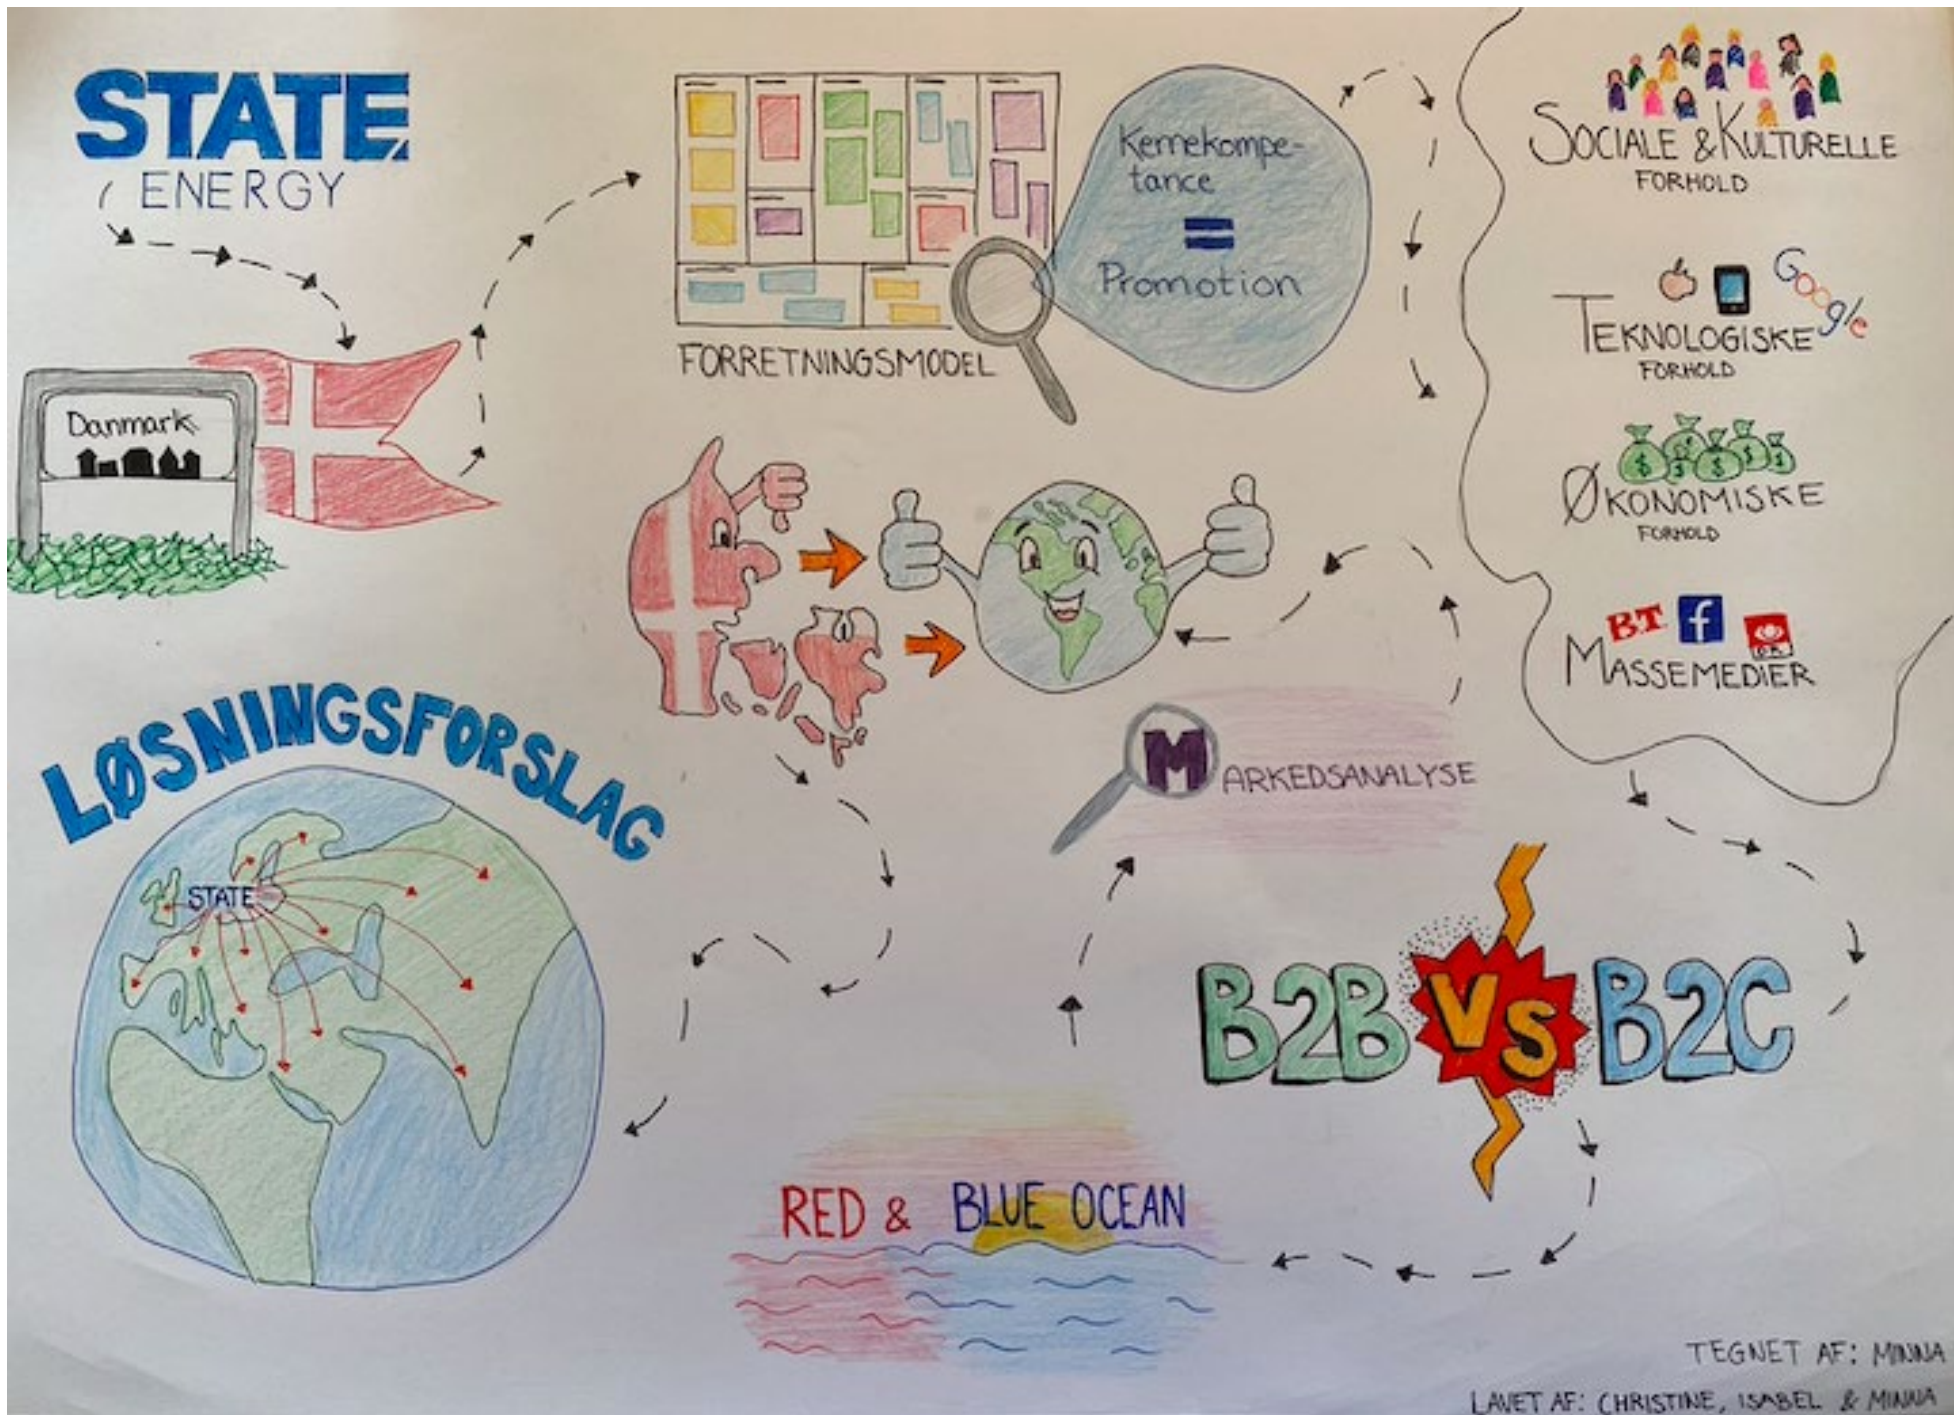 STATE
ENERGY
Danmark
FORRETNINGSMODEL
Kernekompe-
tance
=
Promotion
SOCIALE & KULTURELLE
FORHOLD
Google
TEKNOLOGISKE
FORHOLD
$ $ $ $ $
ØKONOMISKE
FORHOLD
BT f
DR
MASSEMEDIER
B2B VS B2C
RED & BLUE OCEAN
MARKEDSANALYSE
LØSNINGSFORSLAG
STATE
TEGNET AF: MINNA
LAVET AF: CHRISTINE, ISABEL & MINNA